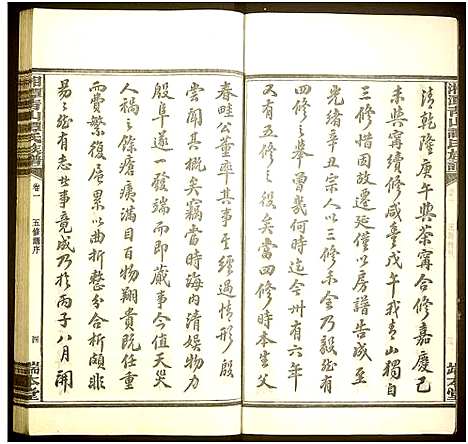 清乾隆庚午與茶甯合修嘉慶己
未與甯續修咸豐戊午我青山獨自
三修憾於遷延僅以房譜告成至
光緒辛丑宗人以三修未合乃毅
四修之舉曾幾何時迄今卅有六年
又有五修之役矣當四修時本生父
春畦公董率其事至經過情形殷
尝聞其概矣竊當時海内清娱物力
殷阜遂一發端而即蕆事今值天災
人禍之餘瘡痍滿目百物翔貴任重
而費繁復扂累以曲折整分合析頗非
易之然有志此事竟成乃於丙子八月開
湘潭青山譚氏族譜
卷一
五修譜序
四
端本堂